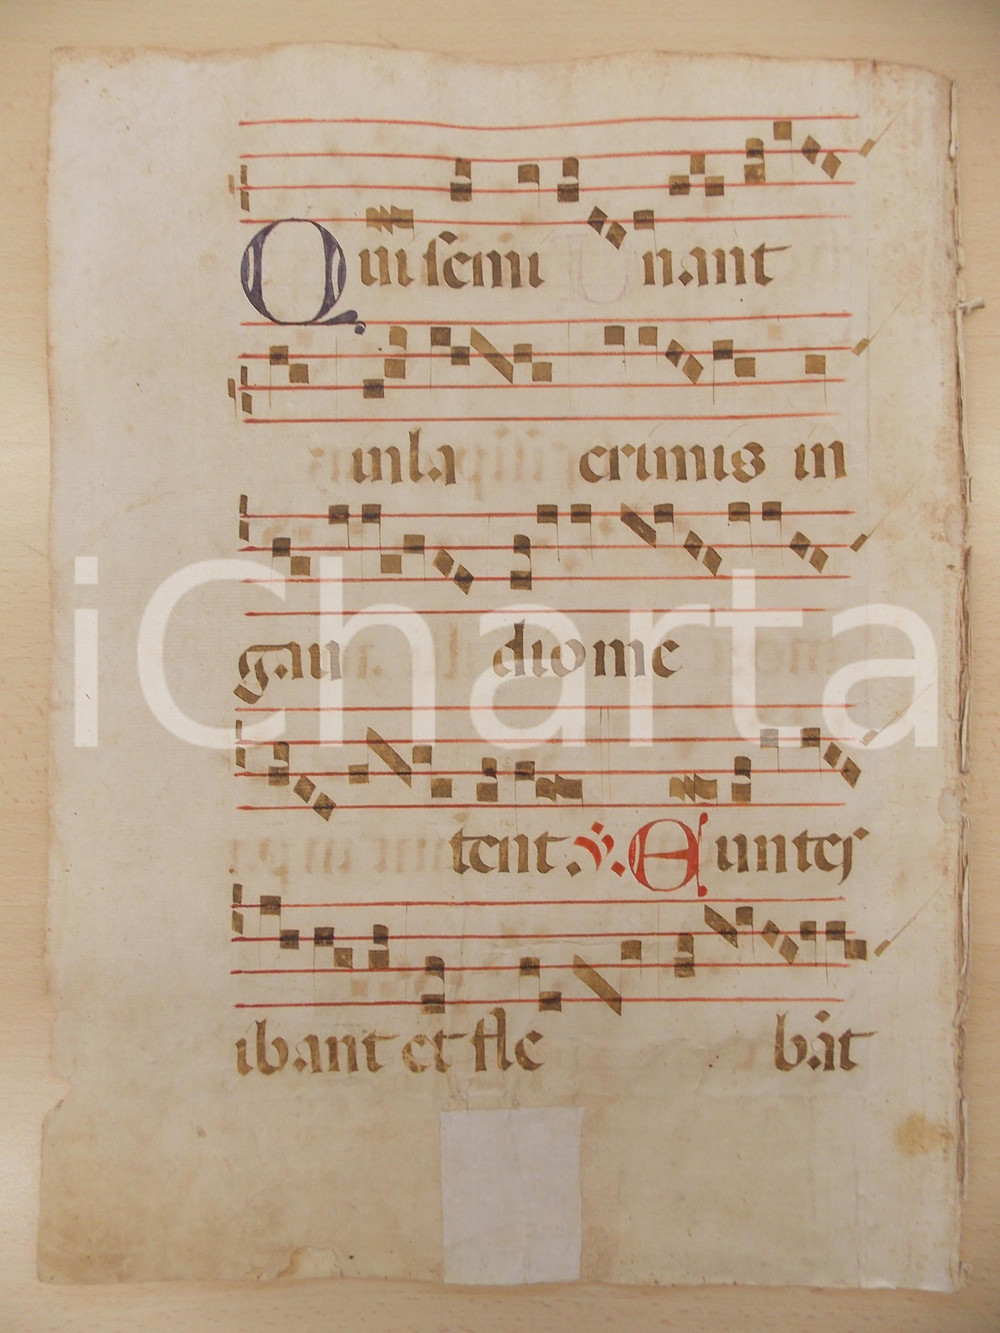 Qui semi nant
in la crimis in
gau dio me
tent. ℣. Euntes
ibant et fle bāt
iCharta